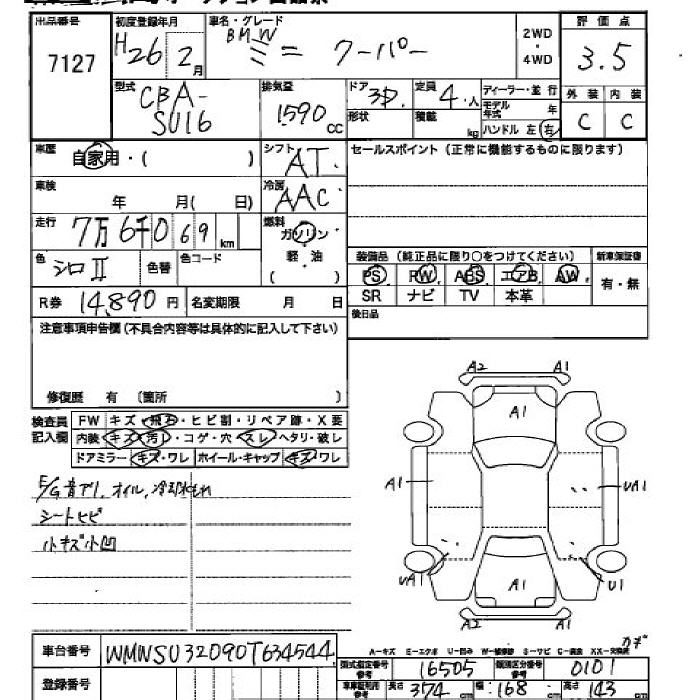 出品番号 初度登録年月 車名・グレード 評価点
7127 H26 2月 BMW ミニ クーパー 2WD・4WD 3.5
型式 排気量 ドア 定員 ディーラー・並行 外装 内装
CBA-SU16 1590cc 3D. 4.人 モデル年式 年 C C
形状 積載 kg ハンドル 左 右
車歴 自家用・( ) シフト AT. セールスポイント (正常に機能するものに限ります)
車検 年 月( 日) 冷房 AAC
走行 7万6千069km 燃料 ガソリン
軽・油
( )
色 シロII 色替 色コード 装備品 (純正品に限り○をつけてください) 新車保証書
PS PW ABS エアB AW 有・無
R券 14,890円 名変期限 月 日 SR ナビ TV 本革
注意事項申告欄 (不具合内容等は具体的に記入して下さい) 後日品
修復歴 有 〔箇所 〕
検査員 FW キズ・飛石・ヒビ割・リペア跡・X要
記入欄 内装 キズ・汚レ・コゲ・穴・スレ・ヘタリ・破レ
ドアミラー キズ・ワレ ホイール・キャップ キズ・ワレ
E/G音アリ,オイル,冷却水もれ
シートヒビ
小キズ小凹
A2 A1
A1
A1 UA1
UA1 A1 U1
A2 A1
A-キズ E-エクボ U-凹み W-補修跡 S-サビ C-腐食 XX-交換済
カギ
車台番号 WMWSU32090T634544 型式指定番号 参考 16505 類別区分番号 参考 0101
登録番号 車検証利用 参考 長さ 374cm 幅 168cm 高さ 143cm